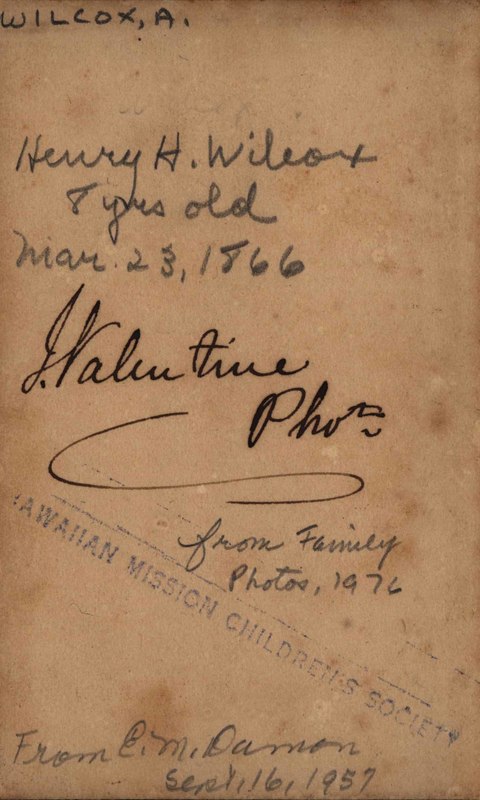 WILCOX, A.
Henry H. Wilcox
8 yrs old
Mar. 23, 1866
J. Valentine
Photr
from Family
Photos, 1976
HAWAIIAN MISSION CHILDREN'S SOCIETY
From E. M. Damon
Sept. 16, 1957